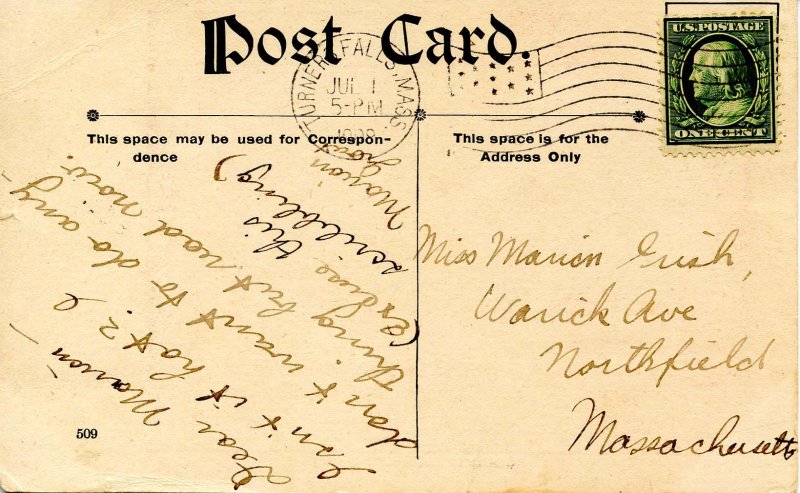 Post Card.
TURNERS FALLS, MASS.
JUL 1
5-PM
U.S. POSTAGE
ONE CENT
This space may be used for Correspon-
dence
This space is for the
Address Only
Dear Marion —
Isn't it hot? I
don't want to do any-
thing but read now.
(Excuse this
scribbling)
Marion
Miss Marion Irish,
Warick Ave
Northfield
Massachusetts
509